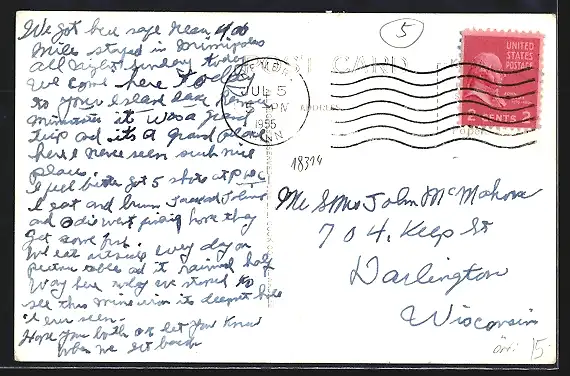 We got here safe near 400
mile stayed in Minnipolas
all night Sunday today
we come here to
to your Island lake near
it was a grand
trip ad it's a grand place
here I never seen such nice
places.
I feel better got 5 shots at
I eat and
ad went fishing hope they
get some fish.
We eat outside every day on
picture table ad it rained half
way here today we stoped to
see this mine its deepest hole
I ever seen.
Hope you both ok let you know
when we get back
5
POST CARD
JUL 5
PM
1955
MINN
ADDRESS
UNITED
STATES
POSTAGE
2 CENTS 2
18394
Mr & Mrs John McMahon
704. Keep St
Darlington
Wisconsin
15